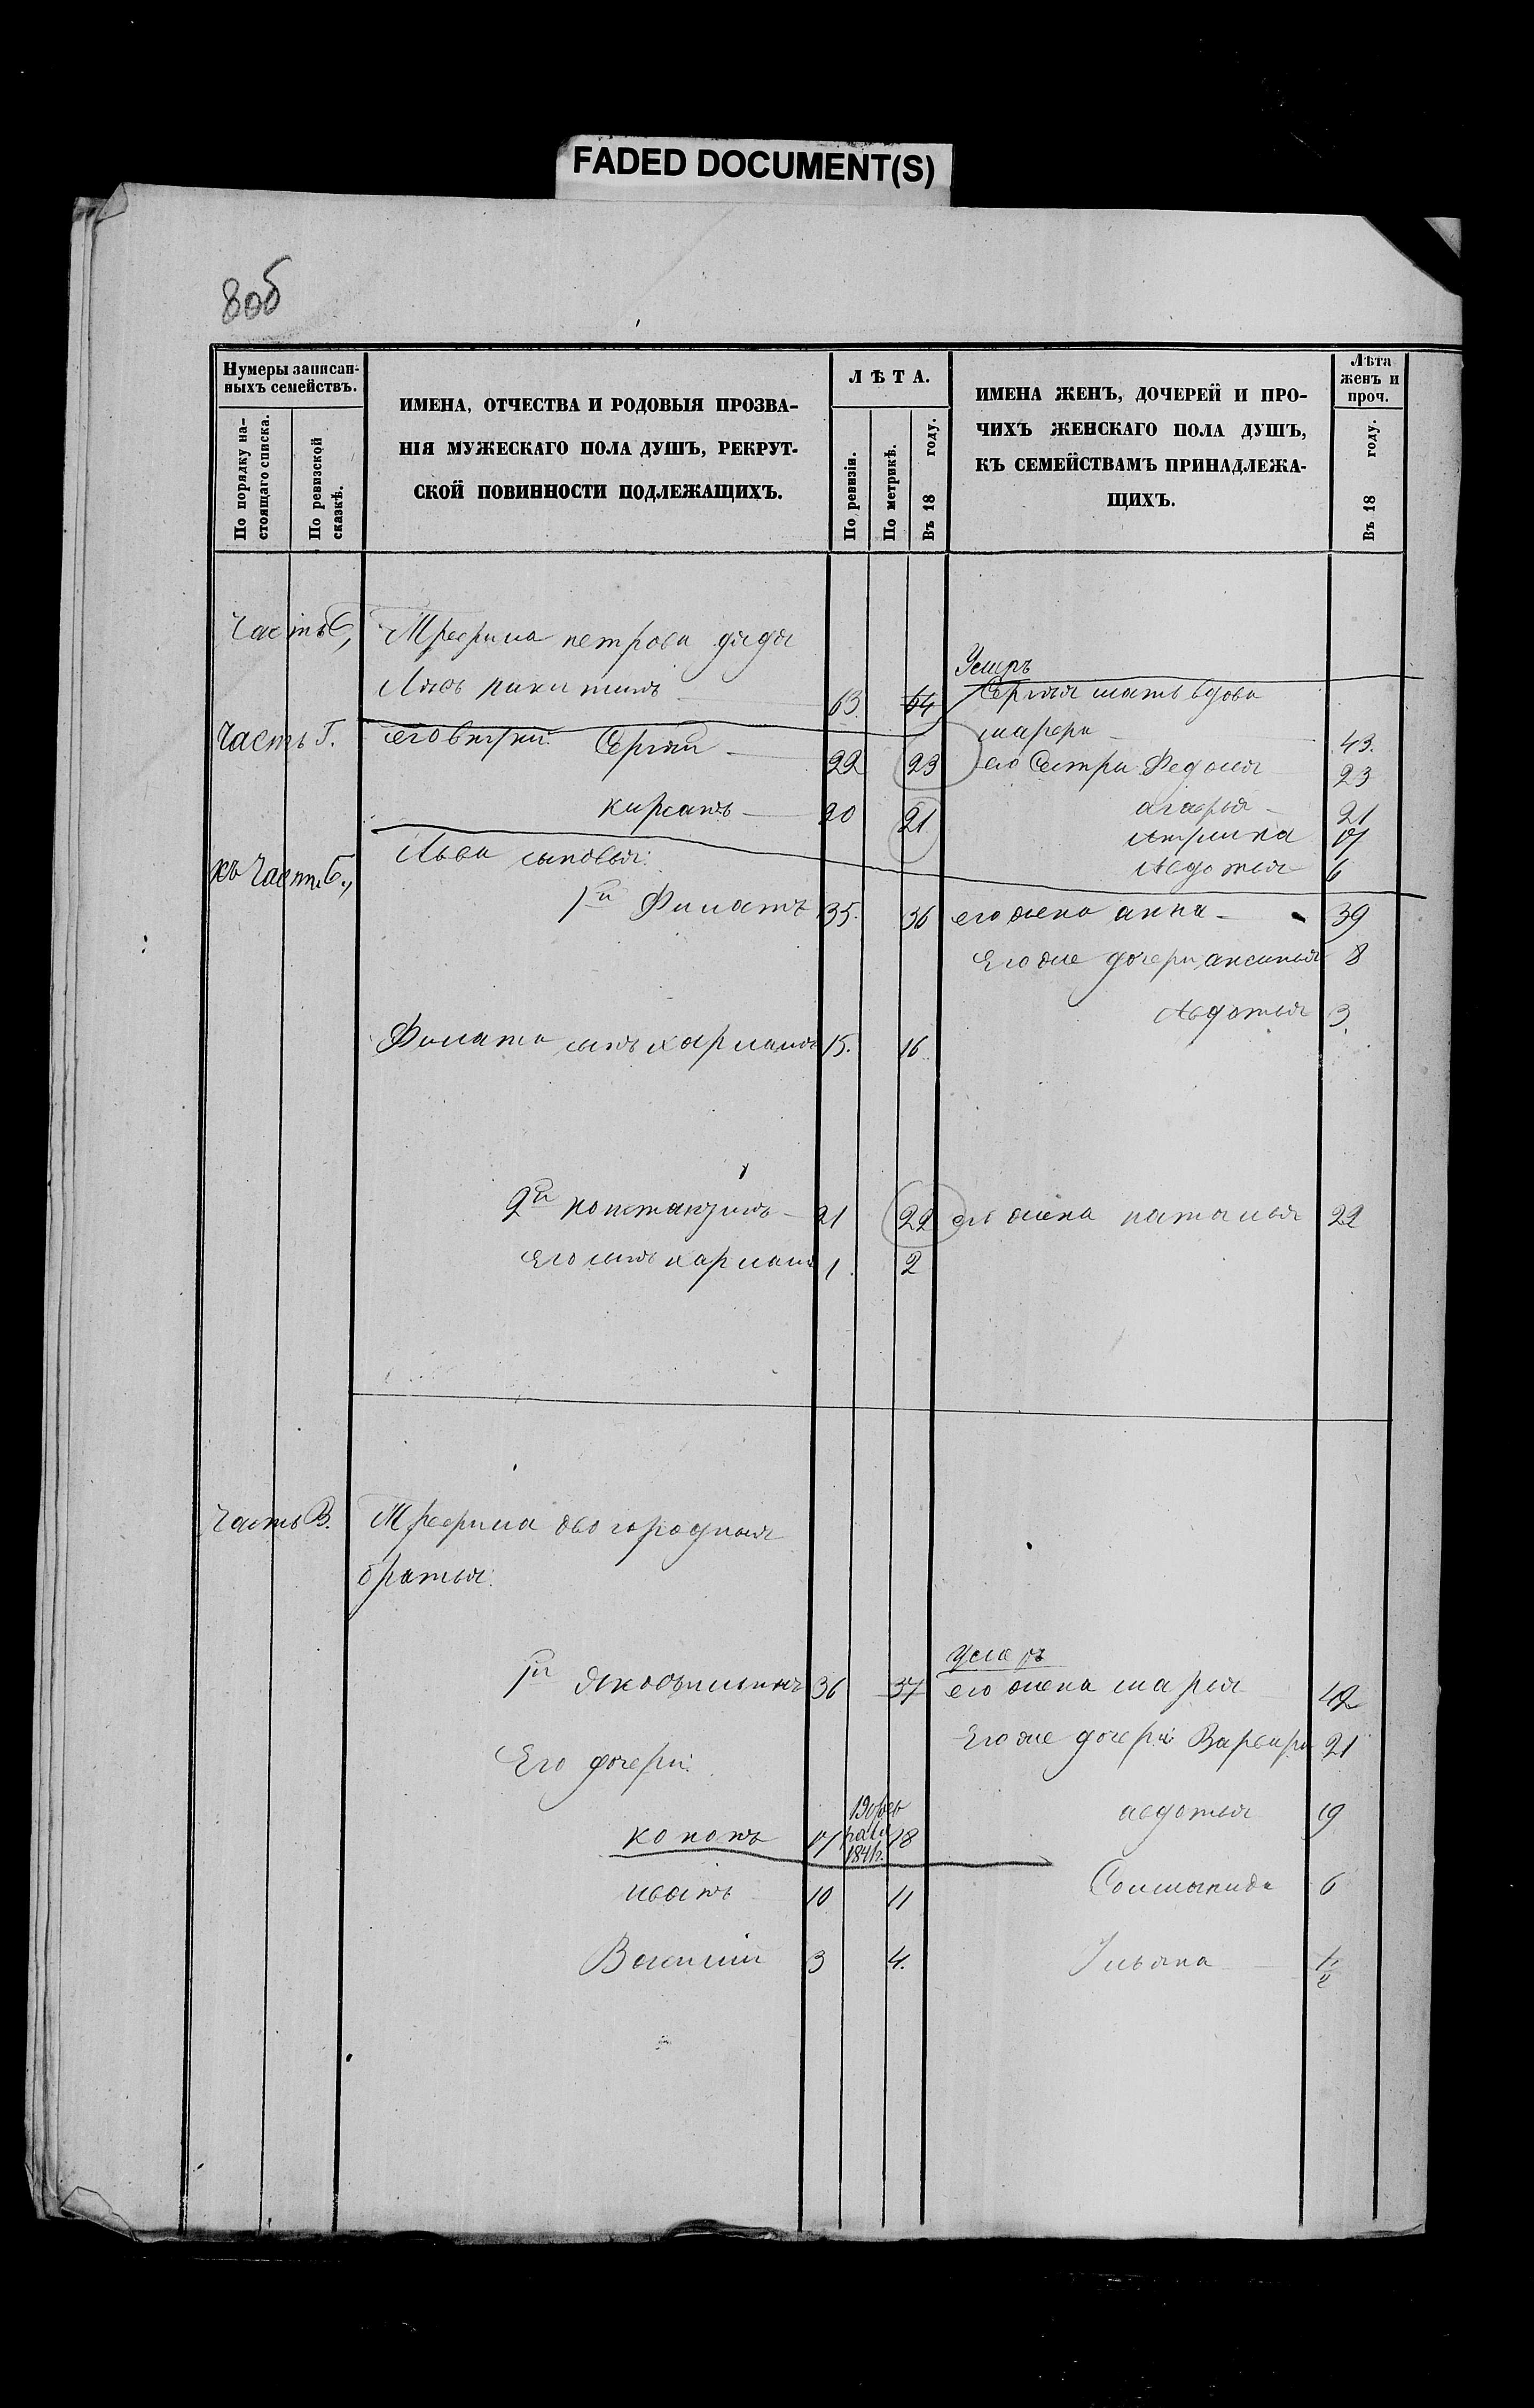 FADED DOCUMENT(S)
8об
Нумеры записан-
ныхъ семействъ.
По порядку на-
стоящаго списка.
По ревизской
сказкѣ.
ИМЕНА, ОТЧЕСТВА И РОДОВЫЯ ПРОЗВА-
НІЯ МУЖЕСКАГО ПОЛА ДУШЪ, РЕКРУТ-
СКОЙ ПОВИННОСТИ ПОДЛЕЖАЩИХЪ.
ЛѢТА.
По ревизіи.
По метрикѣ.
Въ 18 году.
ИМЕНА ЖЕНЪ, ДОЧЕРЕЙ И ПРО-
ЧИХЪ ЖЕНСКАГО ПОЛА ДУШЪ,
КЪ СЕМЕЙСТВАМЪ ПРИНАДЛЕЖА-
ЩИХЪ.
Лѣта
женъ и
проч.
Въ 18 году.
Часть
Трефила петрова дядя
Умеръ
никитинъ 63 64 Сергѣя мать вдова
Часть Г. его внуки: Сергѣй 22 23
43.
его Сестры Федосья 23
кирсанъ 20 21 агафья 21
17
къ Части Б., Льва сыновья: Авдотья 6
1й Филатъ 35. 36 его жена анна 39
Его же дочери, аксинья 8
Авдотья 3.
Филата сынъ харламъ 15. 16
2й константинъ 21 22 его жена наталья 22
Его сынъ харламъ 1. 2
Часть В. Трефила двогородныя
братья:
умеръ
1й Яковъ 36 37 его жена марья 42
Его же дочери: Варвара 21
Его дочери:
авдотья 19
кононъ 17 19 фев
раля
1841г. 18
Соломанида 6
иванъ 10 11
Василий 3 4. Ульяна 1/2